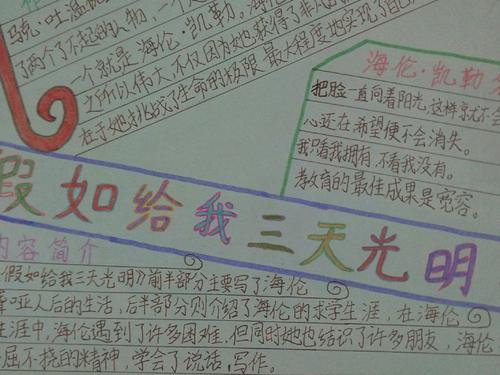 马克·吐温
了两个了不起的人物,一个
一个就是海伦·凯勒。海伦
之所以伟大,不仅因为她获得了非凡的
在于她挑战了生命的极限 最大程度地实现了自己
海伦·凯勒名
把脸一直向着阳光,这样就不会
心还在希望便不会消失。
我只看我拥有,不看我没有。
教育的最佳成果是宽容。
假如给我三天光明
内容简介
假如给我三天光明》前半部分主要写了海伦
哑人后的生活,后半部分则介绍了海伦的求学生涯,在海伦
生涯中,海伦遇到了许多困难,但同时她也结识了许多朋友,海伦
屈不挠的精神,学会了说话,写作。